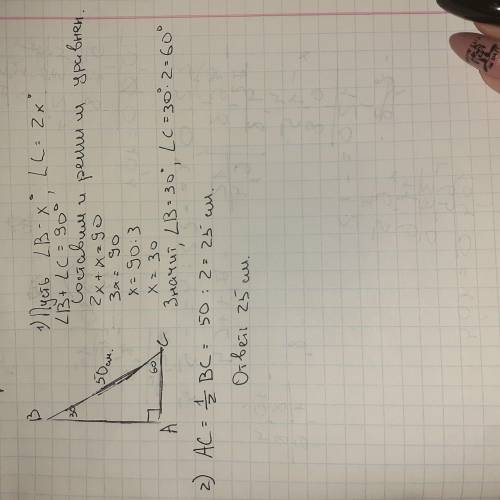 1) Пусть ∠B = x°, ∠C = 2x°
∠B + ∠C = 90°
Составим и решим уравнен.
2x + x = 90
3x = 90
x = 90 : 3
x = 30
Значит, ∠B = 30°, ∠C = 30° · 2 = 60°
B
30
50 см.
60
C
A
2) AC = 1/2 BC = 50 : 2 = 25 см.
Ответ: 25 см.